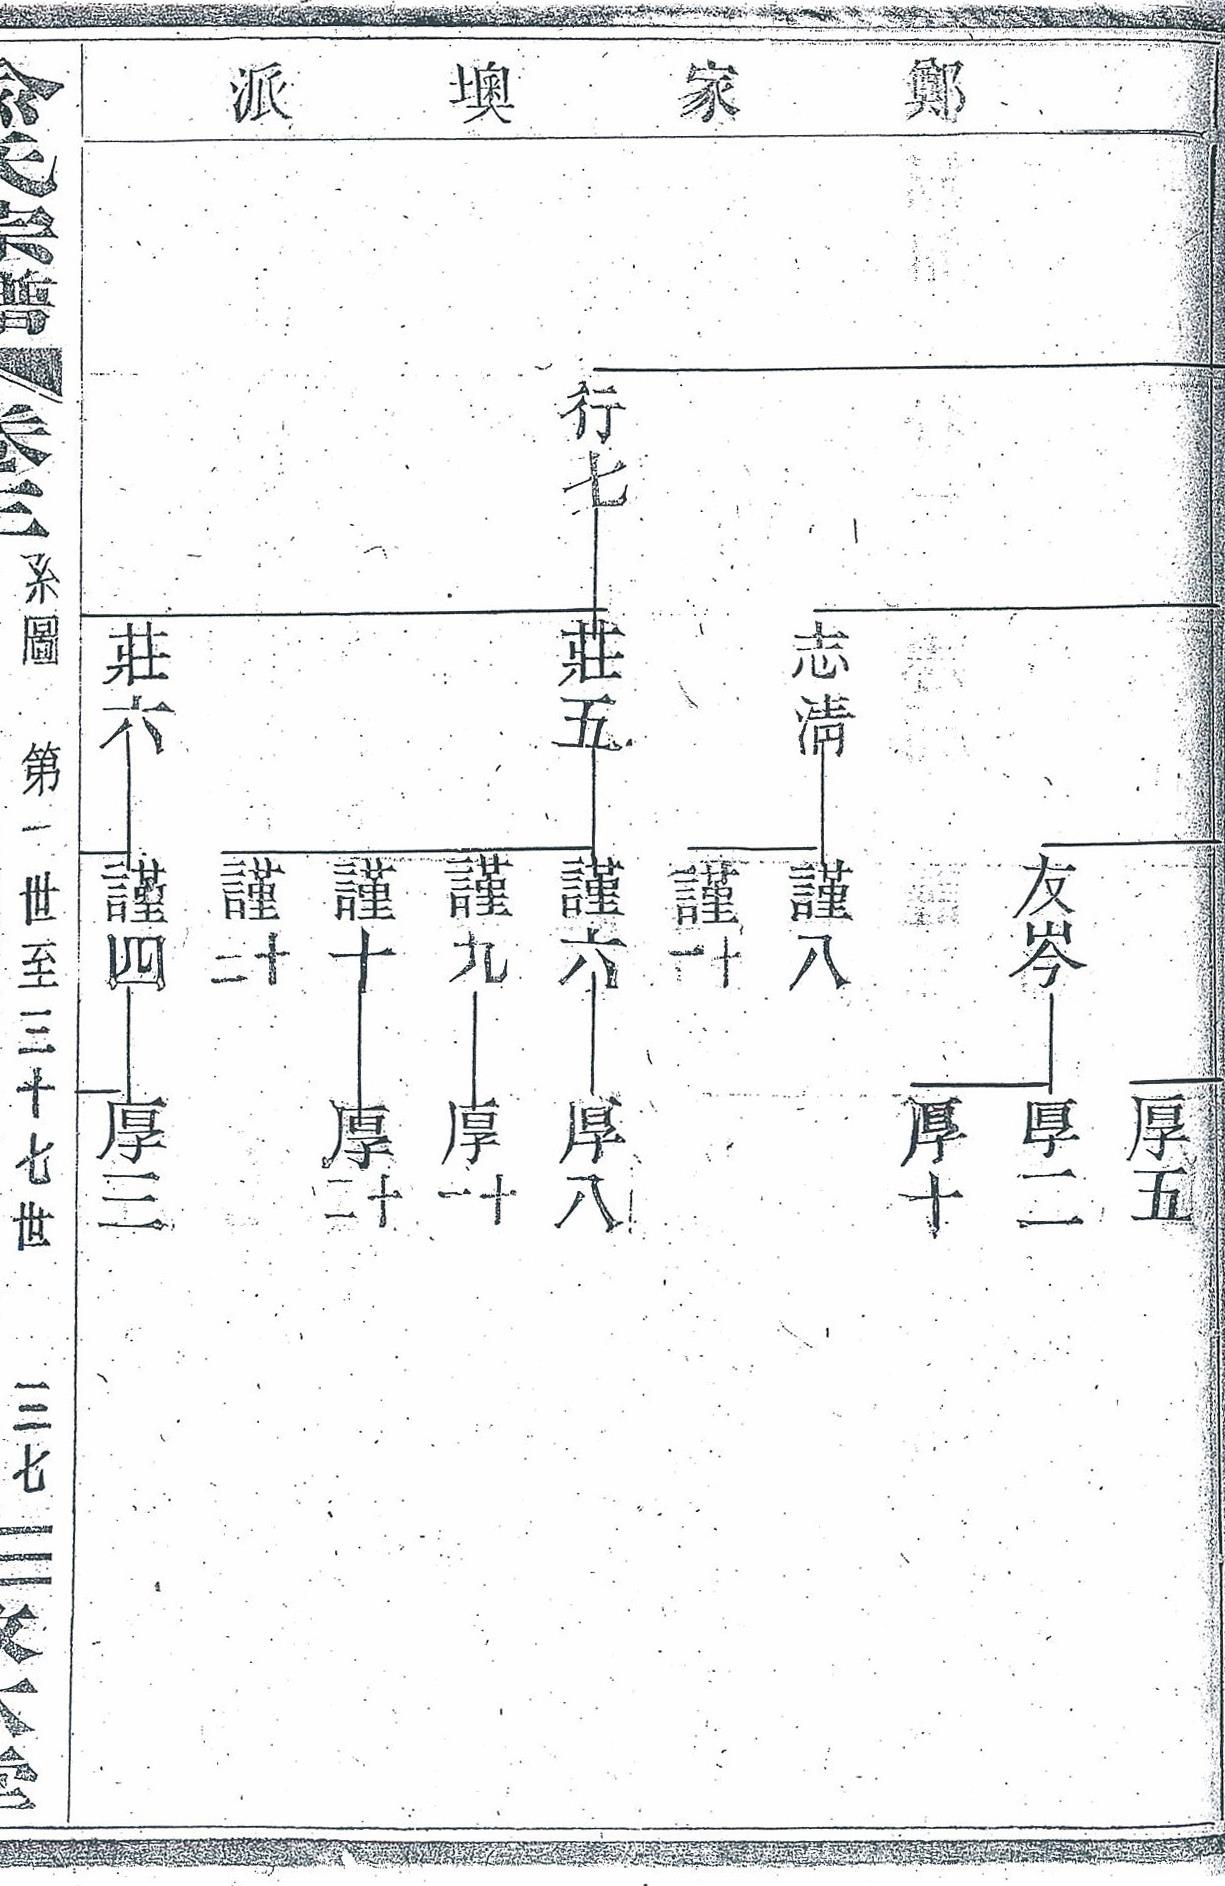 鄭家墺派
行七
志淸
莊五
莊六
友岑
謹八
謹十一
謹六
謹九
謹十
謹十二
謹四
厚五
厚二
厚十
厚八
厚十一
厚十二
厚三
俞氏宗譜 卷三 系圖 第一世至三十七世 三七